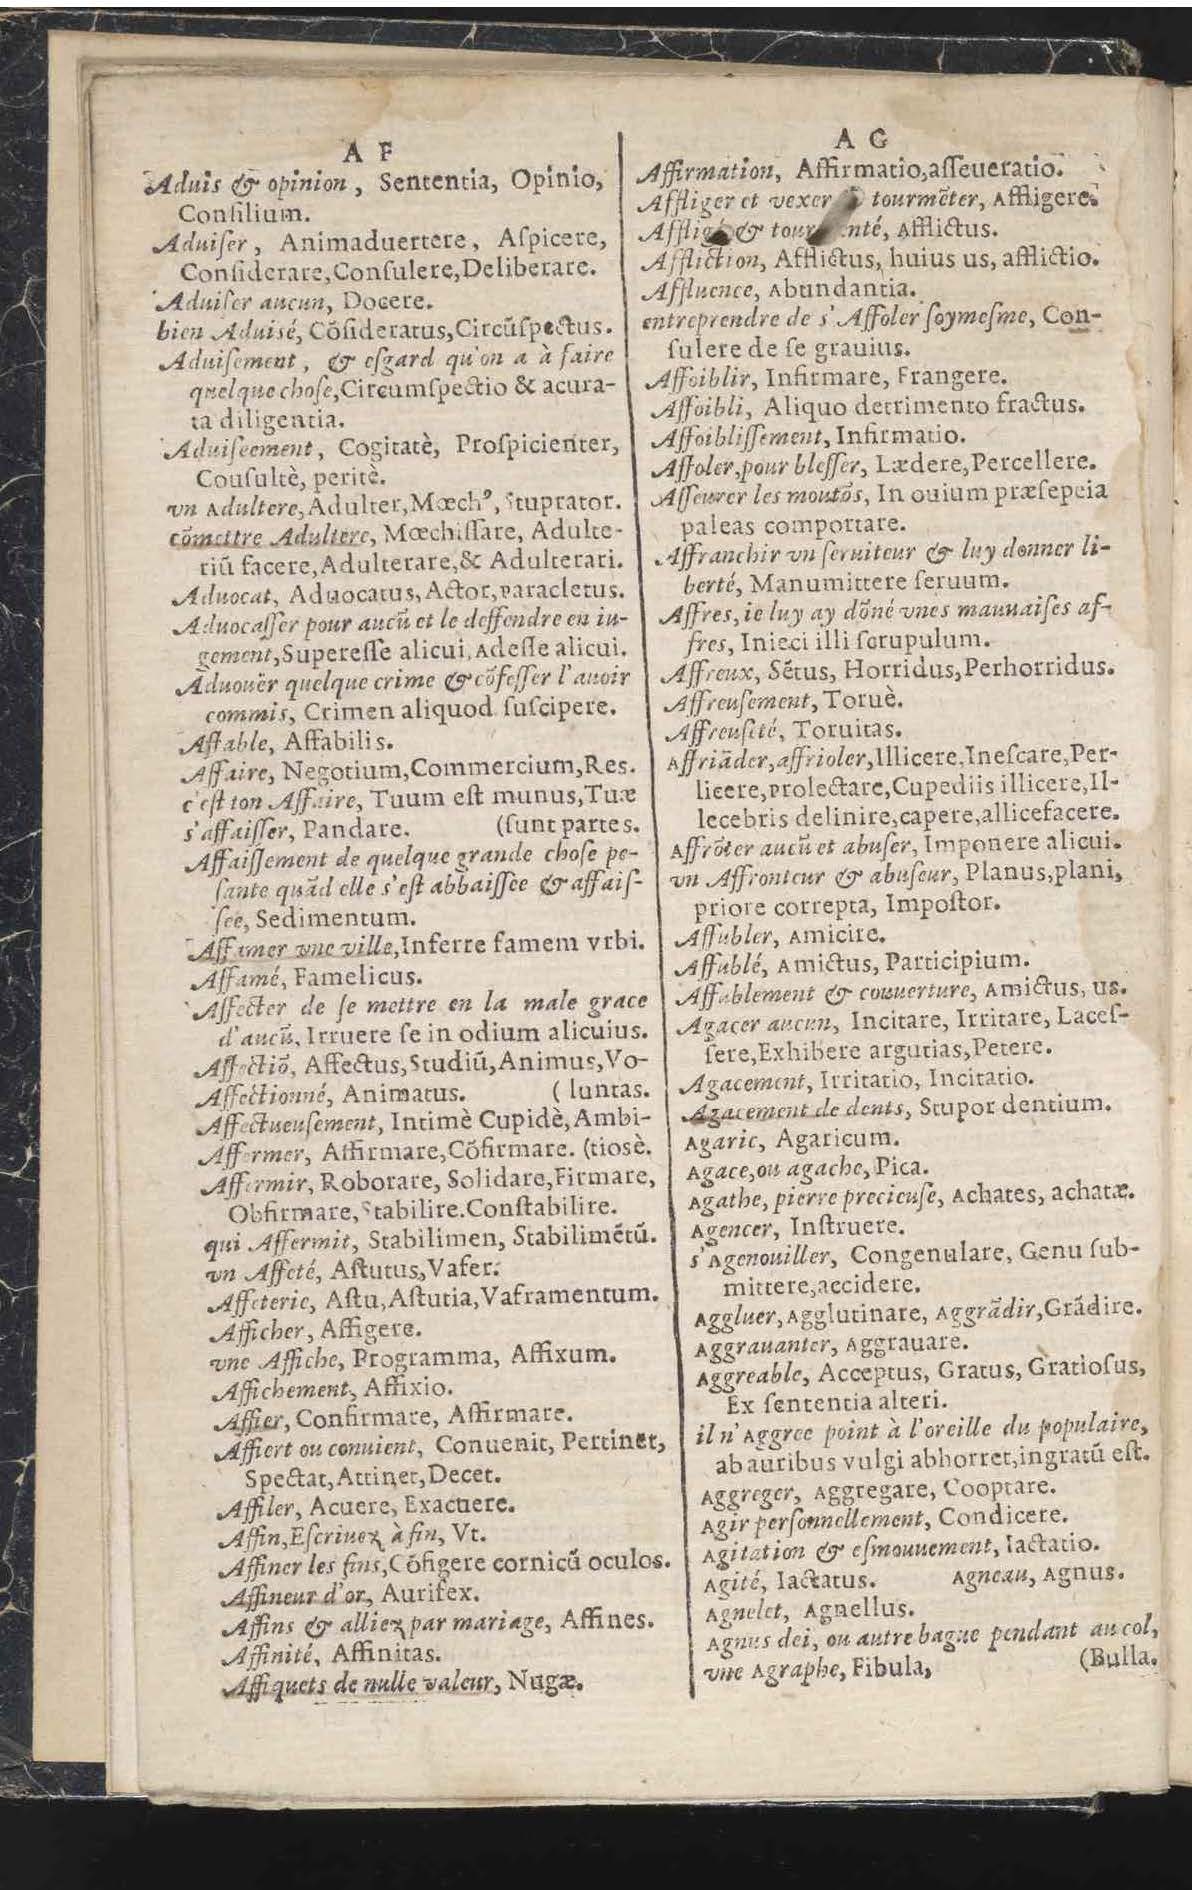 A F
Aduis & opinion, Sententia, Opinio,
Conſilium.
Aduiſer, Animaduertere, Aſpicere,
Conſiderare, Conſulere, Deliberare.
Aduiſer aucun, Docere.
bien Aduisé, Cõſideratus, Circũſpectus.
Aduiſement, & eſgard qu'on a à faire
quelque choſe, Circumſpectio & acura-
ta diligentia.
Aduiſeement, Cogitatè, Proſpicienter,
Couſultè, peritè.
vn Adultere, Adulter, Mœchꝰ, Stuprator.
cõmettre Adultere, Mœchiſſare, Adulte-
riũ facere, Adulterare, & Adulterari.
Aduocat, Aduocatus, Actor, Paracletus.
Aduocaſſer pour aucũ et le deffendre en iu-
gement, Supereſſe alicui, Adeſſe alicui.
Aduouër quelque crime & cõfeſſer l'auoir
commis, Crimen aliquod ſuſcipere.
Affable, Affabilis.
Affaire, Negotium, Commercium, Res.
c'eſt ton Affaire, Tuum eſt munus, Tuæ
s'affaiſſer, Pandare. (ſunt partes.
Affaiſſement de quelque grande choſe pe-
ſante quãd elle s'eſt abbaiſſee & affaiſ-
ſee, Sedimentum.
Affamer vne ville, Inferre famem vrbi.
Affamé, Famelicus.
Affecter de ſe mettre en la male grace
d'aucũ, Irruere ſe in odium alicuius.
Affectiõ, Affectus, Studiũ, Animus, Vo-
Affectionné, Animatus. (luntas.
Affectueuſement, Intimè Cupidè, Ambi-
Affermer, Affirmare, Cõfirmare. (tiosè.
Affermir, Roborare, Solidare, Firmare,
Obfirmare, Stabilire. Conſtabilire.
qui Affermit, Stabilimen, Stabilimẽtũ.
vn Affeté, Aſtutus, Vafer.
Affeterie, Aſtu, Aſtutia, Vaframentum.
Afficher, Affigere.
vne Affiche, Programma, Affixum.
Affichement, Affixio.
Affier, Confirmare, Affirmare.
Affiert ou conuient, Conuenit, Pertinet,
Spectat, Attinet, Decet.
Affiler, Acuere, Exacuere.
Affin, Eſcriuez à fin, Vt.
Affiner les fins, Cõfigere cornicũ oculos.
Affineur d'or, Aurifex.
Affins & alliez par mariage, Affines.
Affinité, Affinitas.
Affiquets de nulle valeur, Nugæ.
A G
Affirmation, Affirmatio, aſſeueratio.
Affliger et vexer tourmẽter, Affligere.
& Afflictus.
Affliction, Afflictus, huius us, afflictio.
Affluence, Abundantia.
entreprendre de s'Affoler ſoymeſme, Con-
ſulere de ſe grauius.
Affoiblir, Infirmare, Frangere.
Affoibli, Aliquo detrimento fractus.
Affoibliſſement, Infirmatio.
Affoler, pour bleſſer, Lædere, Percellere.
Affeurer les moutõs, In ouium præſepeia
paleas comportare.
Affranchir vn ſeruiteur & luy donner li-
berté, Manumittere ſeruum.
Affres, ie luy ay dõné vnes mauuaiſes af-
fres, Inieci illi ſcrupulum.
Affreux, Sẽtus, Horridus, Perhorridus.
Affreuſement, Toruè.
Affreuſeté, Toruitas.
Affriãder, affrioler, Illicere, Ineſcare, Per-
licere, Prolectare, Cupediis illicere, Il-
lecebris delinire, capere, allicefacere.
Affrõter aucũ et abuſer, Imponere alicui.
vn Affronteur & abuſeur, Planus, plani,
priore correpta, Impoſtor.
Affubler, Amicire.
Affublé, Amictus, Participium.
Affublement & couuerture, Amictus, us.
Agacer aucun, Incitare, Irritare, Laceſ-
ſere, Exhibere argutias, Petere.
Agacement, Irritatio, Incitatio.
Agacement de dents, Stupor dentium.
Agaric, Agaricum.
Agace, ou agache, Pica.
Agathe, pierre precieuſe, Achates, achatæ.
Agencer, Inſtruere.
s'Agenouiller, Congenulare, Genu ſub-
mittere, accidere.
Aggluer, Agglutinare, Aggrãdir, Grãdire.
Aggrauanter, Aggrauare.
Aggreable, Acceptus, Gratus, Gratioſus,
Ex ſententia alteri.
il n'Aggree point à l'oreille du populaire,
ab auribus vulgi abhorret, ingratũ eſt.
Aggreger, Aggregare, Cooptare.
Agir perſonnellement, Condicere.
Agitation & eſmouuement, Iactatio.
Agité, Iactatus. Agneau, Agnus.
Agnelet, Agnellus.
Agnus dei, ou autre bague pendant au col,
vne Agraphe, Fibula, (Bulla.